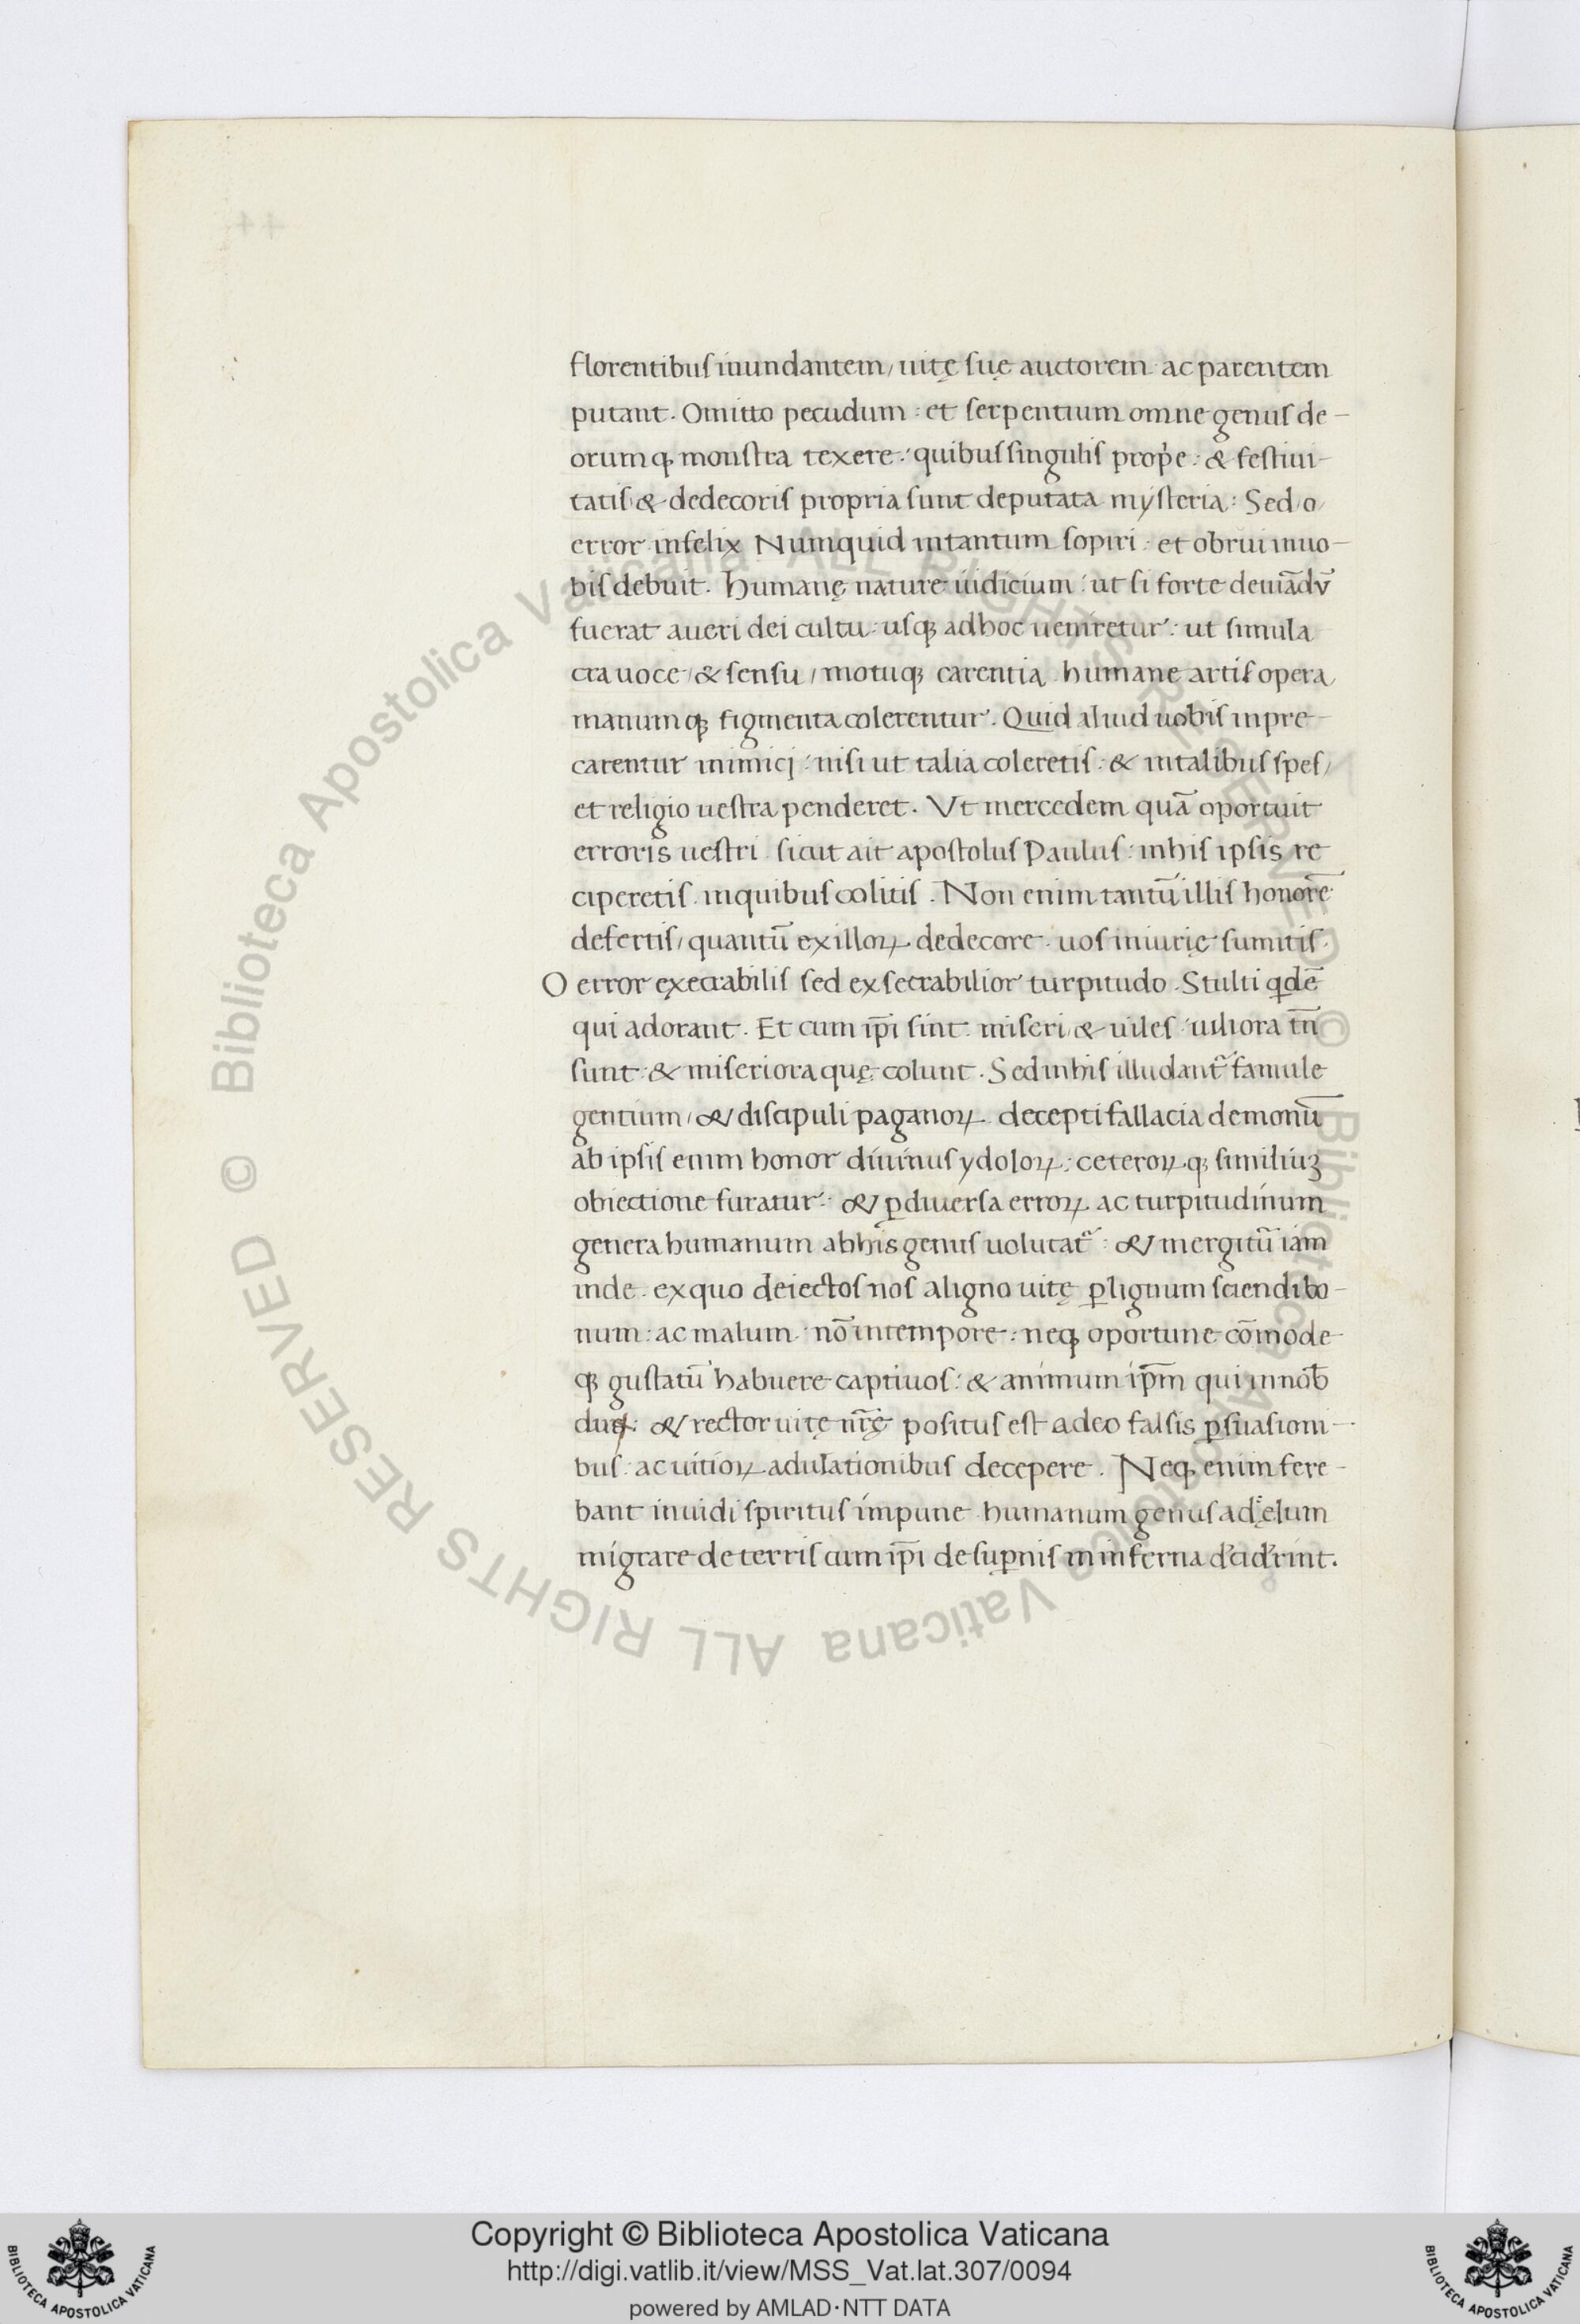 florentibus inundantem, uitę suę auctorem ac parentem
putant. Omitto pecudum: et serpentium omne genus de-
orumq; monstra texere: quibus singulis prop̄e: & festiui-
tatis, & dedecoris propria sunt deputata mysteria: Sed, o,
error infelix Numquid intantum sopiri: et obrui inuo-
bis debuit. humanę nature iudicium: ut si forte deuiādū
fuerat aueri dei cultu: usq; adhoc ueniretur: ut simula
cra uoce, & sensu, motuq; carentia humane artis opera,
manumq; figmenta colerentur. Quid aliud uobis inpre-
carentur inimici: nisi ut talia coleretis: & intalibus spes,
et religio uestra penderet. Vt mercedem quā oportuit
erroris uestri sicut ait apostolus Paulus: inhis ipsis re
ciperetis. inquibus colitis. Non enim tantū illis honorē
defertis, quantū exilloꝝ dedecore uos iniurię sumitis.
O error execrabilis sed exsecrabilior turpitudo. Stulti qdē
qui adorant. Et cum ip̄i sint miseri, & uiles: uiliora tn̄
sunt: & miseriora quę colunt. Sed inhis illudant᷑ famule
gentium, & discipuli paganoꝝ decepti fallacia demonū
ab ipsis enim honor diuinus ydoloꝝ: ceteroꝝq; similiuꝫ
obiectione furatur: & ꝑdiuersa erroꝝ ac turpitudinum
genera humanum abhis genus uolutat᷑: & mergitū iam
inde exquo deiectos nos aligno uitę ꝑlignum sciendi bo-
num: ac malum nō intempore: neq; oportune cōmode
q; gustatū habuere captiuos: & animum ip̄m qui innob̄
dux: & rector uitę nr̄ę positus est adeo falsis ꝑsuasioni-
bus: ac uitioꝝ adulationibus decepere. Neq; enim fere-
bant inuidi spiritus impune humanum genus adcęlum
migrare de terris cum ip̄i de suꝑnis in inferna d̓cid̓rint.
© Biblioteca Apostolica Vaticana ALL RIGHTS RESERVED © Biblioteca Apostolica Vaticana ALL RIGHTS RESERVED
Copyright © Biblioteca Apostolica Vaticana
http://digi.vatlib.it/view/MSS_Vat.lat.307/0094
powered by AMLAD·NTT DATA
BIBLIOTECA APOSTOLICA VATICANA
BIBLIOTECA APOSTOLICA VATICANA